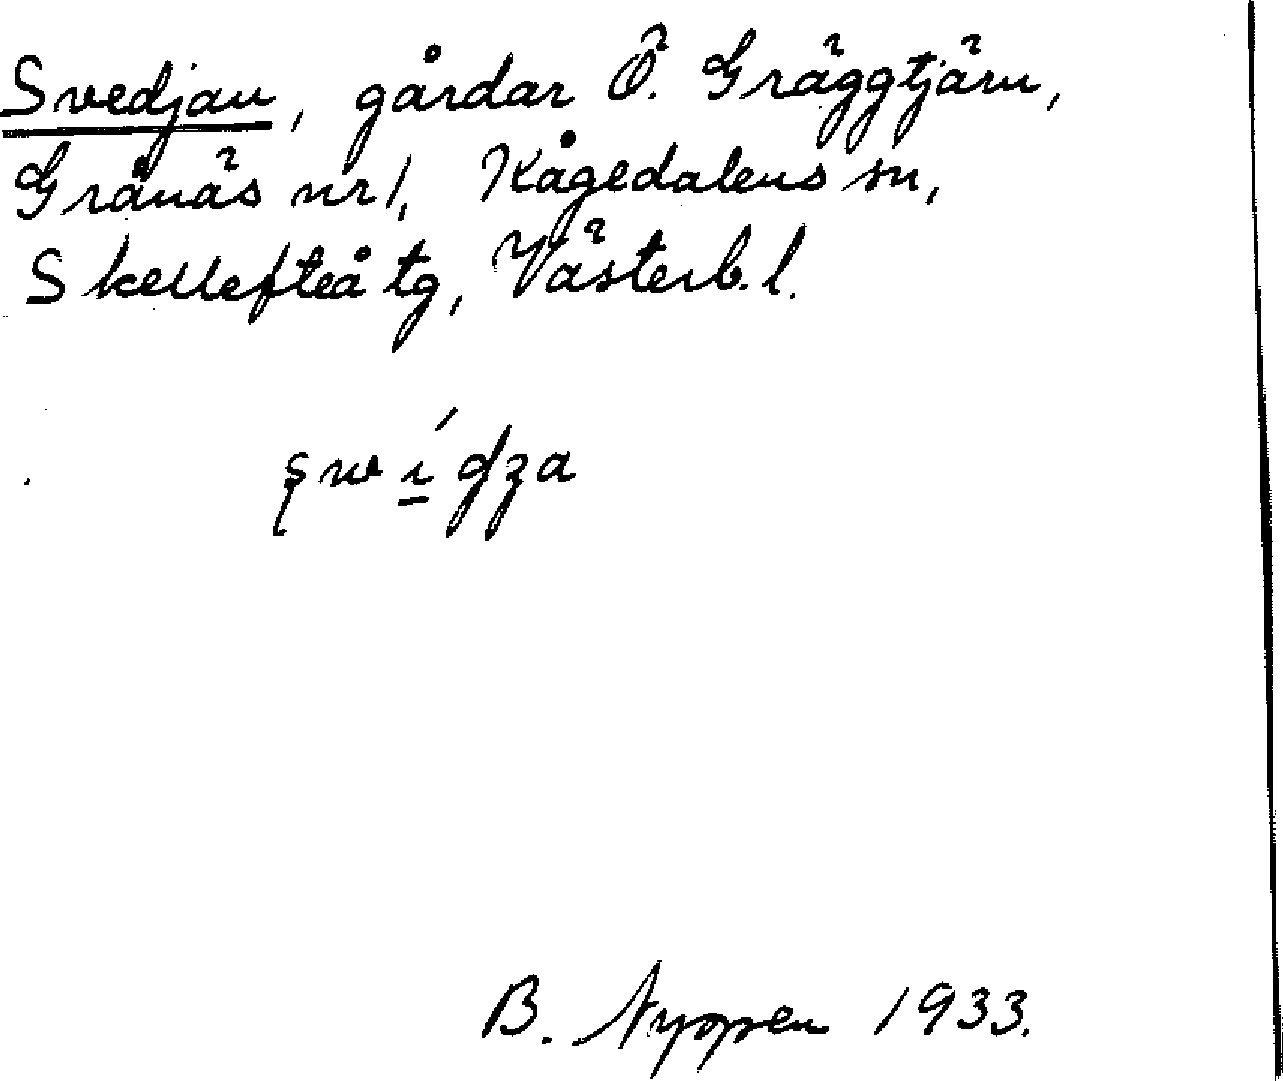 Svedjan, gårdar Ö. Gräggtjärn,
Grånäs nr 1, Kågedalens sn,
Skellefteå tg, Västerb. l.
B. Nyppen 1933.